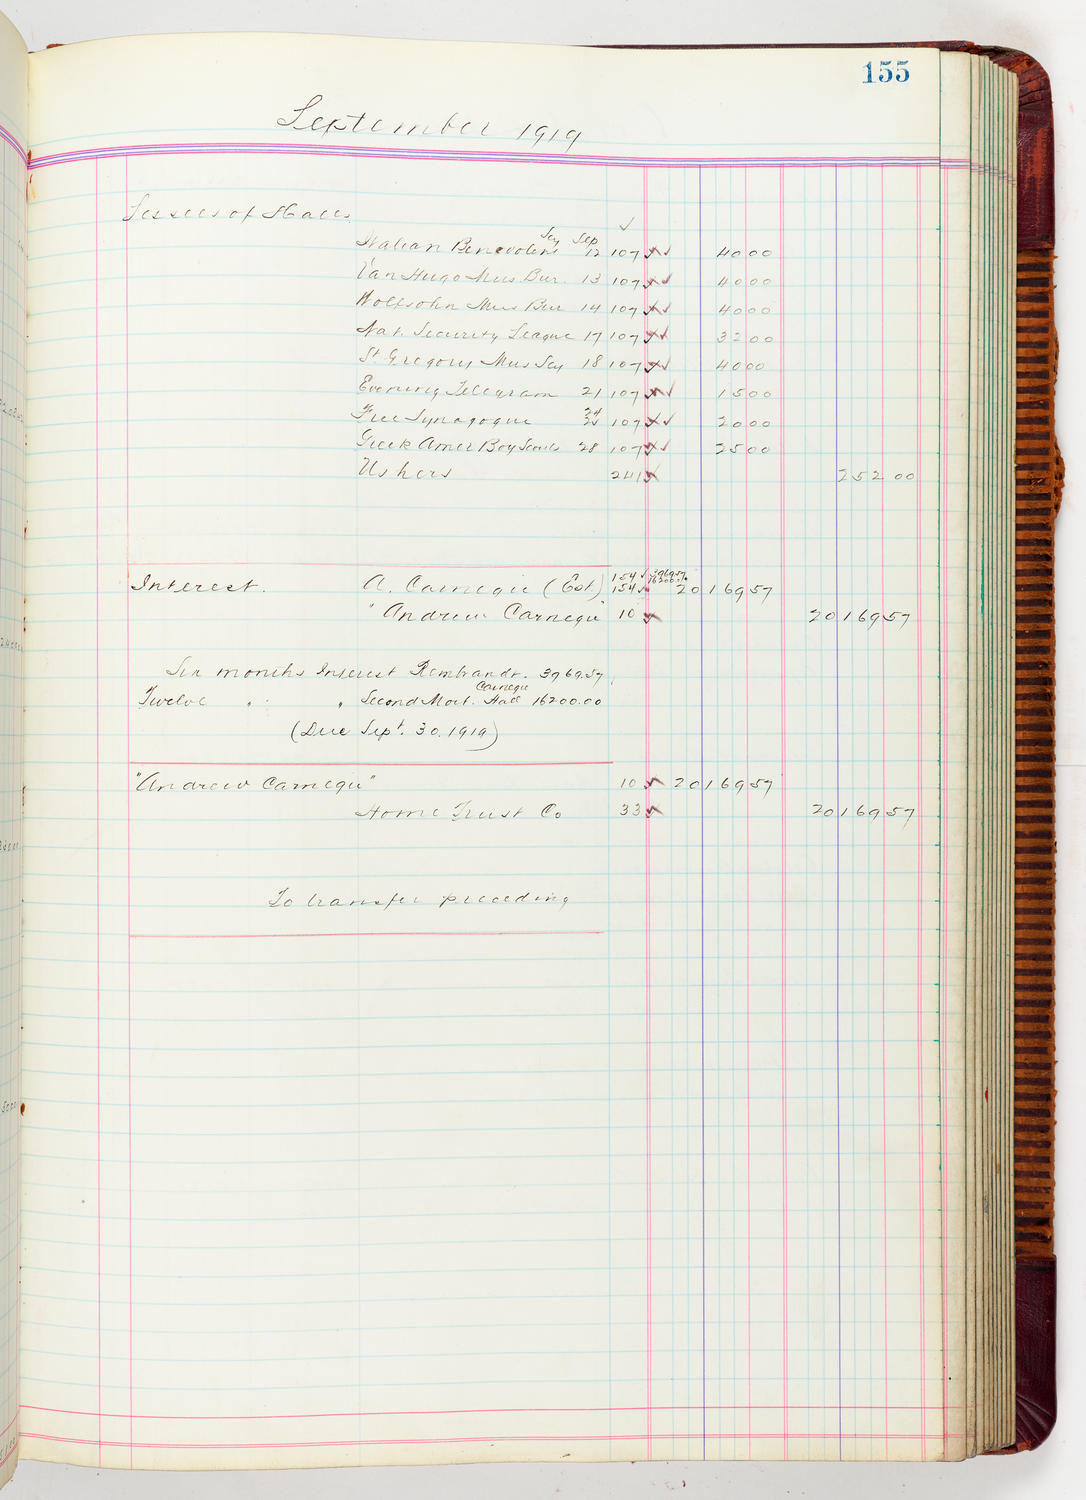 155
September 1919
Lessees of Halls
Italian Benevolent Soy Sep 12 107 40 00
Van Hugo Mus Bur. 13 107 40 00
Wolfsohn Mus Bur 14 107 40 00
Nat. Security League 17 107 32 00
St Gregory Mus Soy 18 107 40 00
Evening Telegram 21 107 15 00
Free Synagogue 24 107 20 00
Greek Amer Boy Scouts 28 107 25 00
Ushers 241 252 00
Interest. A. Carnegie (Est.) 154 3969.57
154 16200.00 20169 57
"Andrew Carnegie" 10 20169 57
Six months Interest Rembrandt. 3969.57
Twelve " " Second Mort. Carnegie Hall 16200.00
(Due Sept. 30. 1919)
"Andrew Carnegie" 10 20169 57
Home Trust Co 33 20169 57
To transfer preceding